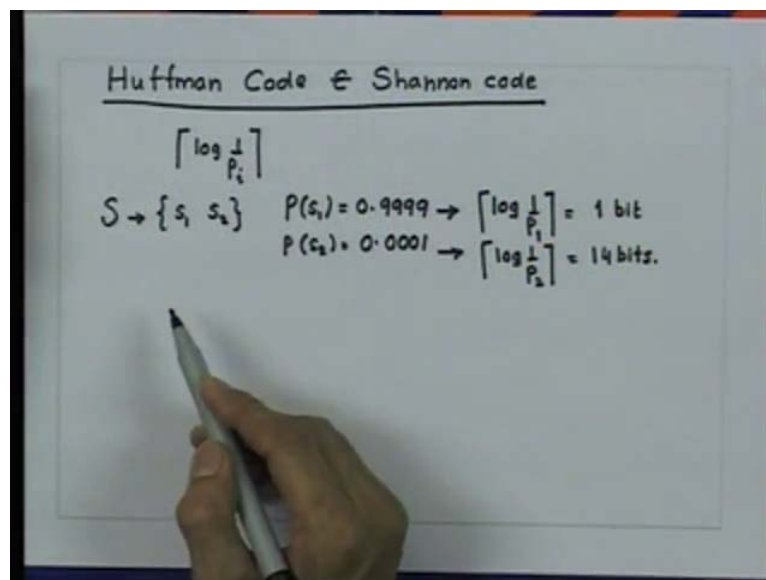 Huffman Code & Shannon code
⌈log 1/Pi⌉
S → {s1 s2} P(s1) = 0.9999 → ⌈log 1/P1⌉ = 1 bit
P(s2) = 0.0001 → ⌈log 1/P2⌉ = 14 bits.